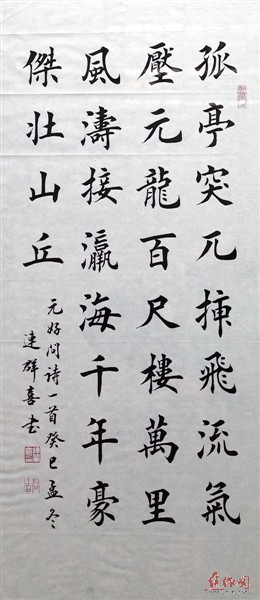 孤亭突兀揷飛流氣
壓元龍百尺樓萬里
風濤接瀛海千年豪
傑壯山丘
元好问诗一首癸巳孟冬
群喜书
焦作网